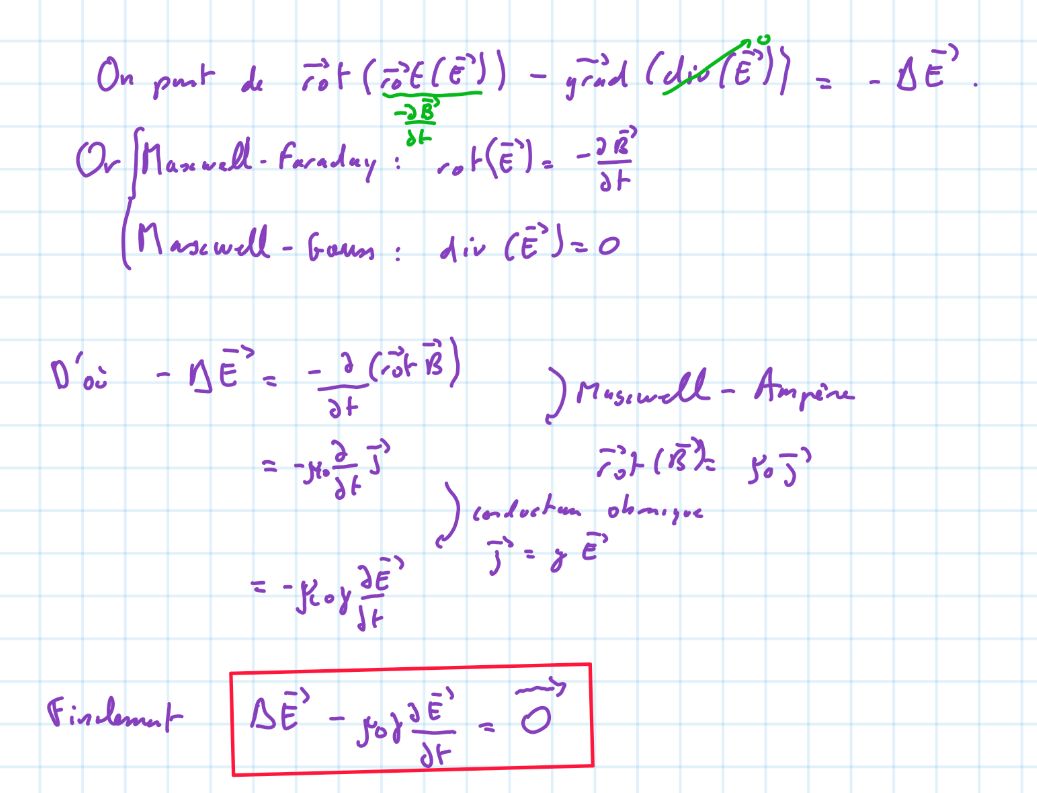 On part de $\overrightarrow{rot}(\overrightarrow{rot}(\vec{E})) - \overrightarrow{grad}(div(\vec{E})) = -\Delta\vec{E}$.
$-\frac{\partial\vec{B}}{\partial t}$ 0
Or Maxwell-Faraday : $rot(\vec{E}) = -\frac{\partial\vec{B}}{\partial t}$
Maxwell-Gauss : $div(\vec{E}) = 0$
D'où $-\Delta\vec{E} = -\frac{\partial}{\partial t}(\overrightarrow{rot}\vec{B})$
) Maxwell-Ampère
$= -\mu_0\frac{\partial}{\partial t}\vec{j}$ $\overrightarrow{rot}(\vec{B}) = \mu_0\vec{j}$
) conducteur ohmique
$\vec{j} = \gamma\vec{E}$
$= -\mu_0\gamma\frac{\partial\vec{E}}{\partial t}$
Finalement $\Delta\vec{E} - \mu_0\gamma\frac{\partial\vec{E}}{\partial t} = \vec{0}$